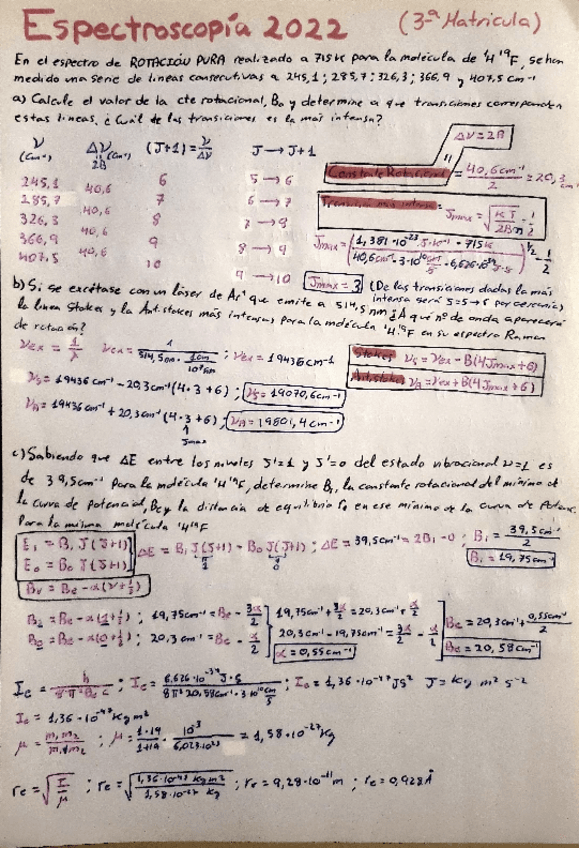 Espectroscopía 2022 (3ª Matricula)
En el espectro de ROTACIÓN PURA realizado a 715K para la molécula de ¹H¹⁹F, se han
medido una serie de lineas consecutivas a 245,1; 285,7; 326,3; 366,9 y 407,5 cm⁻¹
a) Calcule el valor de la cte rotacional, B₀ y determine a que transiciones corresponden
estas lineas. ¿Cuál de las transiciones es la más intensa?
ν (cm⁻¹) Δν (cm⁻¹) (J+1) = ν/Δν J → J+1
2B
245,1 6 5 → 6
40,6
285,7 7 6 → 7
40,6
326,3 8
40,6
366,9 9 8 → 9
40,6
407,5 10 9 → 10
Δν = 2B
Constante Rotacional = 40,6cm⁻¹/2 = 20,3 cm⁻¹
Transición más intensa: Jmax = √(KT/2Bh) - 1/2
Jmax = (1,381·10⁻²³ J·K⁻¹ · 715K / 40,6cm⁻¹ · 3·10¹⁰ cm/s · 6,626·10⁻³⁴ J·s)^1/2 - 1/2
Jmax = 3 (De las transiciones dadas la más
intensa será J=5→6 por cercanía)
b) Si se excitase con un láser de Ar⁺ que emite a 514,5 nm ¿A qué nº de onda aparecerá
la linea Stokes y la Antistokes más intensas para la molécula ¹H¹⁹F en su espectro Raman
de rotación?
νex = 1/λ νex = 1/(514,5nm · 1cm/10⁷nm) ; νex = 19436cm⁻¹
Stokes νs = νex - B(4Jmax+6)
Antistokes νA = νex + B(4Jmax+6)
νs = 19436cm⁻¹ - 20,3cm⁻¹(4·3+6) ; νs = 19070,6cm⁻¹
νA = 19436cm⁻¹ + 20,3cm⁻¹(4·3+6) ; νA = 19801,4cm⁻¹
Jmax
c) Sabiendo que ΔE entre los niveles J'=1 y J'=0 del estado vibracional ν=1 es
de 39,5cm⁻¹ para la molécula ¹H¹⁹F, determine B₁, la constante rotacional del mínimo de
la curva de potencial, Be y la distancia de equilibrio re en ese mínimo de la curva de Potenc.
Para la misma molécula ¹H¹⁹F
E₁ = B₁ J(J+1)
E₀ = B₀ J(J+1)
ΔE = B₁ J(J+1) - B₀ J(J+1) ; ΔE = 39,5cm⁻¹ = 2B₁ - 0 ; B₁ = 39,5cm⁻¹/2
1 0
B₁ = 19,75cm⁻¹
Bν = Be - α(ν+1/2)
B₁ = Be - α(1+1/2) ; 19,75cm⁻¹ = Be - 3α/2
B₀ = Be - α(0+1/2) ; 20,3cm⁻¹ = Be - α/2
19,75cm⁻¹ + 3α/2 = 20,3cm⁻¹ + α/2
20,3cm⁻¹ - 19,75cm⁻¹ = 3α/2 - α/2
α = 0,55cm⁻¹
Be = 20,3cm⁻¹ + 0,55cm⁻¹/2
Be = 20,58cm⁻¹
Ie = h/(8·π²·Be·c) ; Ie = 6,626·10⁻³⁴ J·s/(8π² 20,58cm⁻¹ · 3·10¹⁰ cm/s) ; Ie = 1,36·10⁻⁴⁷ JS² J = Kg m² s⁻²
Ie = 1,36·10⁻⁴⁷ Kg m²
μ = m₁m₂/m₁+m₂ ; μ = 1·19/1+19 · 10⁻³/6,023·10²³ = 1,58·10⁻²⁷ Kg
re = √(I/μ) ; re = √(1,36·10⁻⁴⁷ Kg m²/1,58·10⁻²⁷ Kg) ; re = 9,28·10⁻¹¹ m ; re = 0,928Å